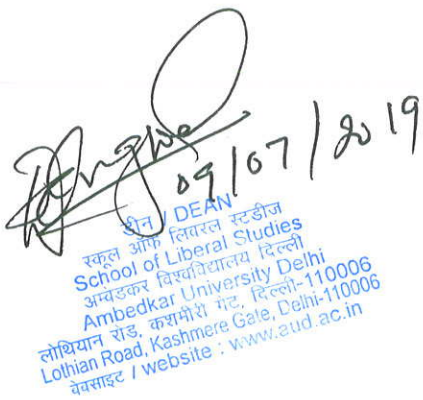 09/07/2019
डीन / DEAN
स्कूल ऑफ लिबरल स्टडीज
School of Liberal Studies
अम्बेडकर विश्वविद्यालय दिल्ली
Ambedkar University Delhi
लोथियान रोड, कशमीरी गेट, दिल्ली-110006
Lothian Road, Kashmere Gate, Delhi-110006
वेबसाइट / website : www.aud.ac.in